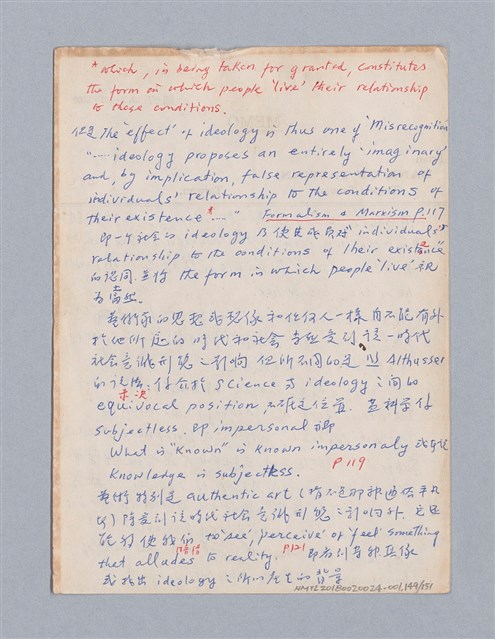 * which, in being taken for granted, constitutes
the form in which people 'live' their relationship
to those conditions.
但是 The 'effect' of ideology is thus one of 'Misrecognition'
"…… ideology proposes an entirely 'imaginary'
and, by implication, false representation of
individuals' relationship to the conditions of
their existence *…" Formalism & Marxism P.117
即一個社會的 ideology 乃使其成員對 individuals'
relationship to the conditions of their existence"
的認同，並將 the form in which people 'live' 視
為當然。
藝術家的思想或認像和任何人一樣自不能有外
於他所處的時代和社會
社會意識形態之影響 但所不同的是 Althusser
的 介於 science 與 ideology 之間的
未決
equivocal position 不確定位置. 蓋科學乃
subjectless. 即 impersonal
What is "Known" is Known impersonaly
Knowledge is subjectless.
P 119
藝術特別是 authentic art (指不是那種
) 除受到該時代社會意識形態之影響外，它還
能夠使我們 to 'see', 'perceive' or 'feel' something
that alludes to reality. P121 即
暗指
或指出 ideology 之所以產生的背景
NMTL20180020024-001,149/151